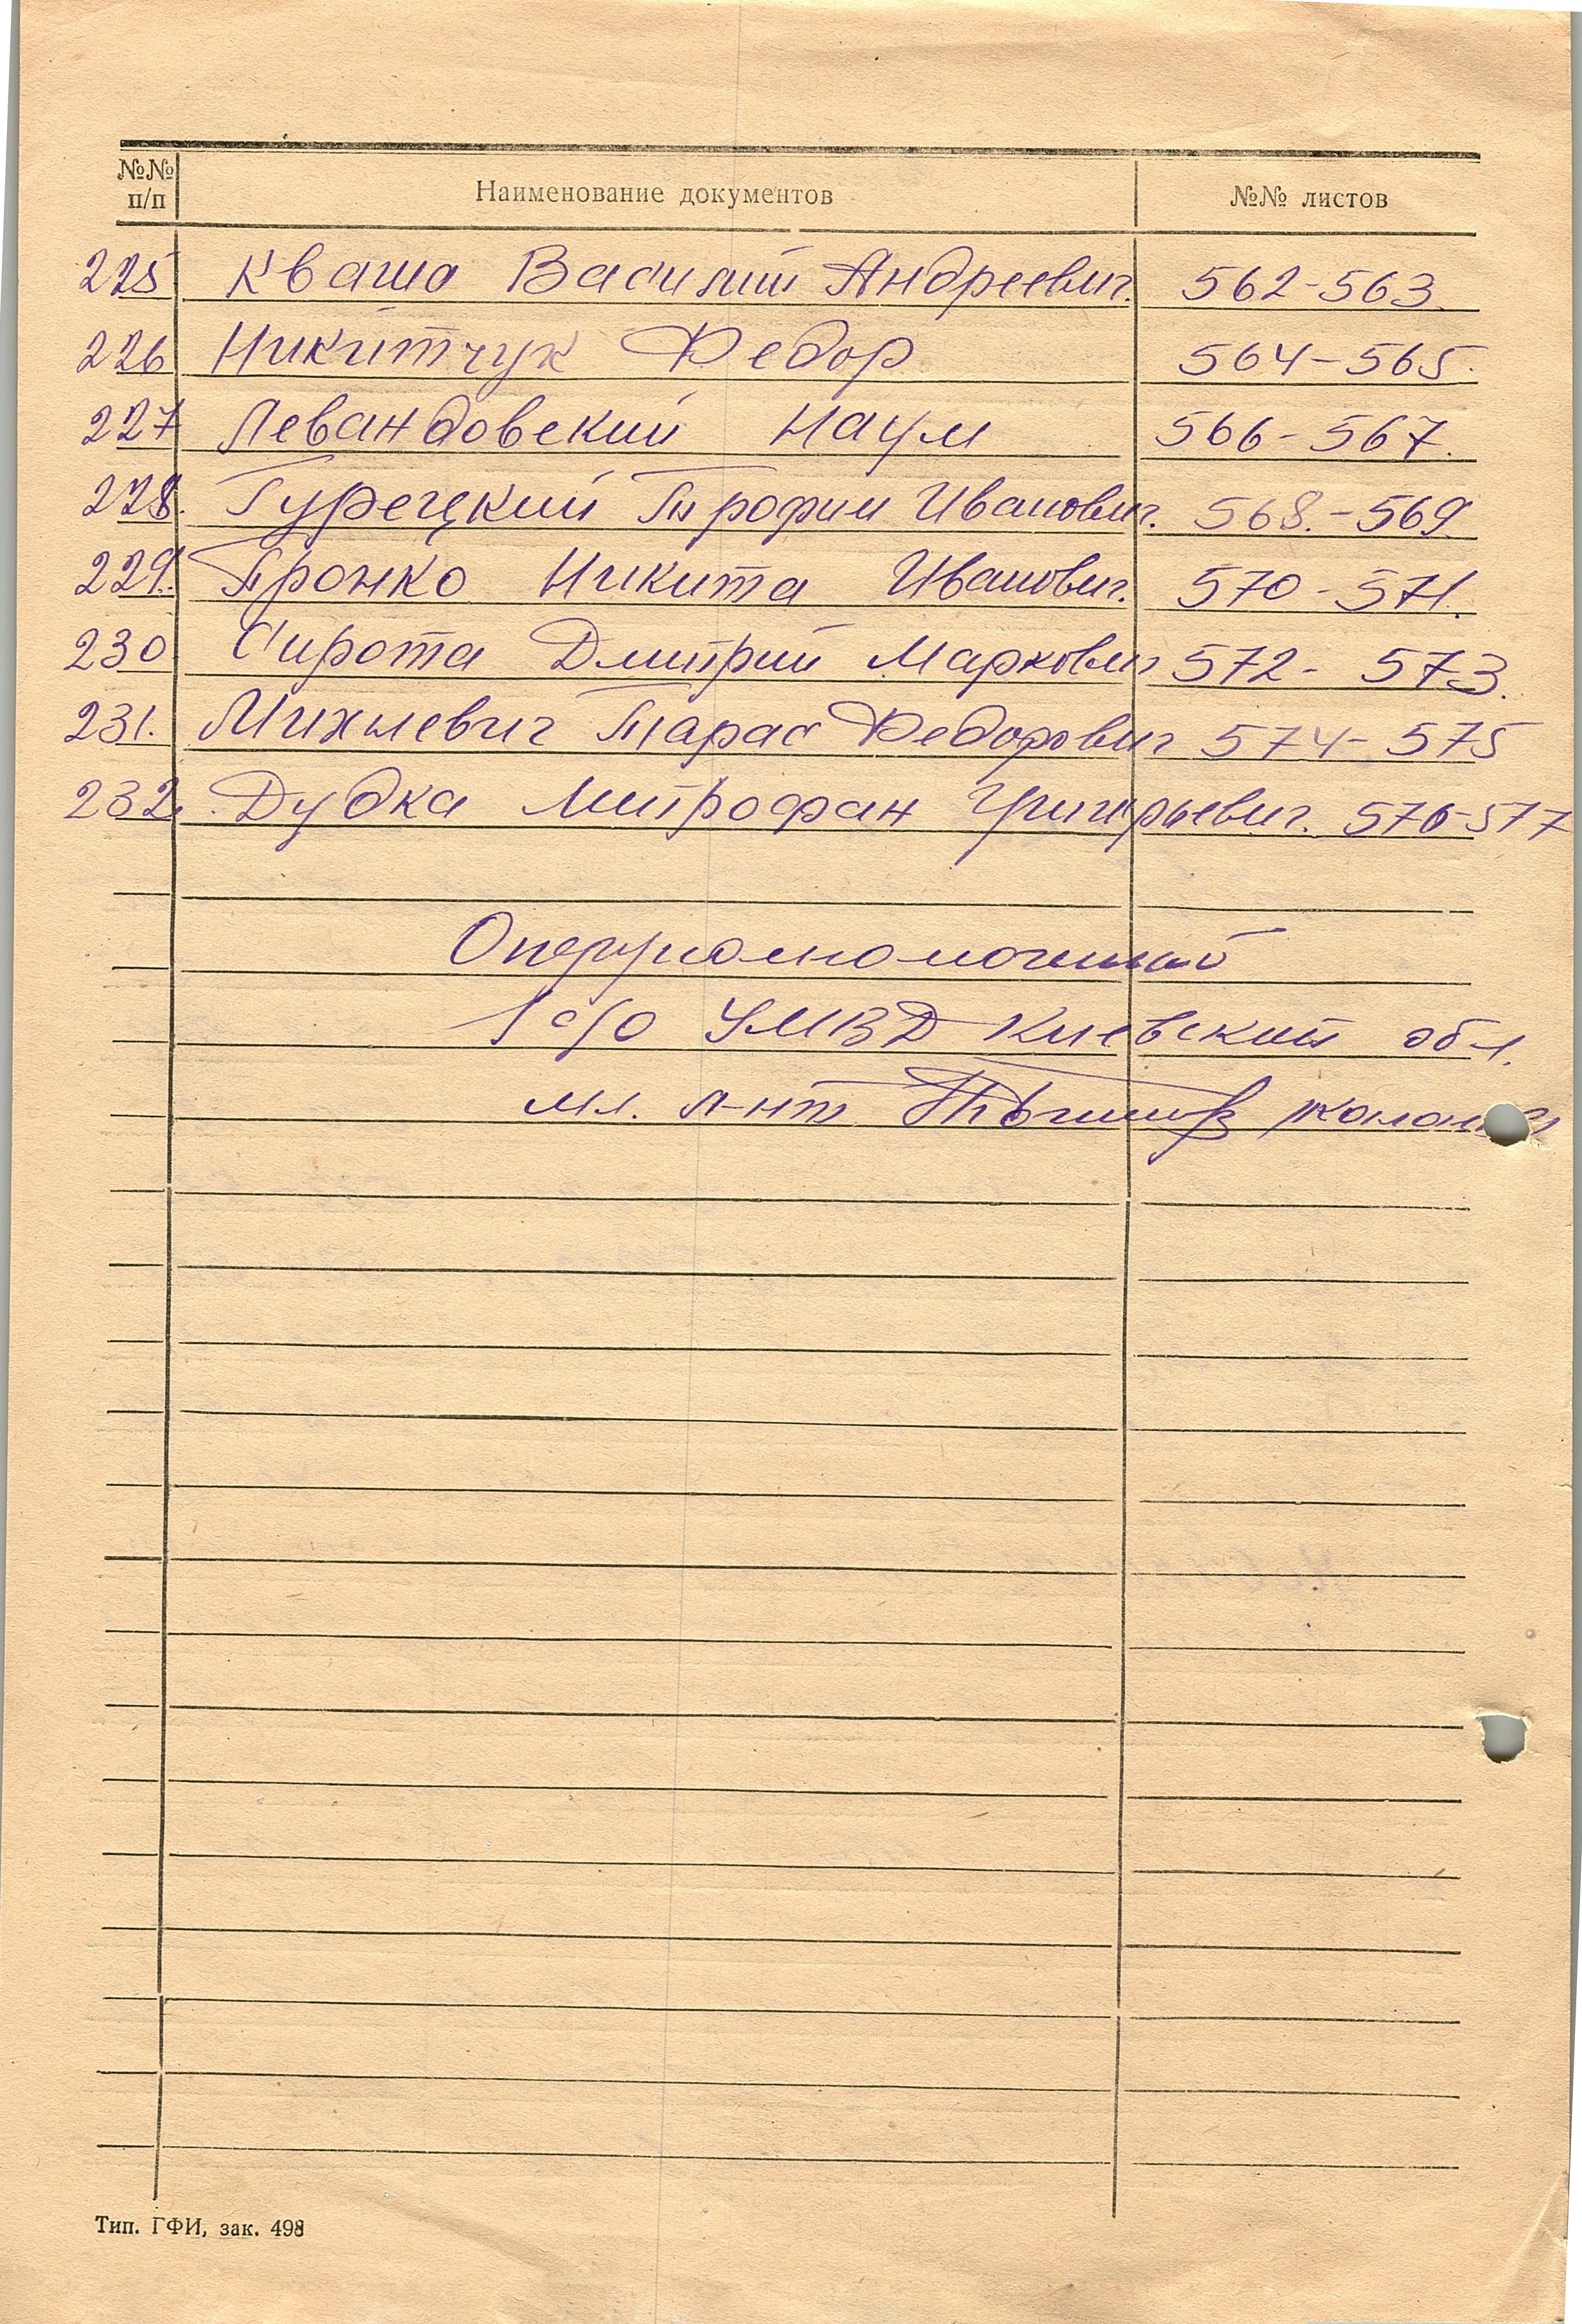 №№ п/п Наименование документов №№ листов
225 Кваша Василий Андреевич. 562-563.
226 Никитчук Федор 564-565.
227 Левандовский Наум 566-567.
228. Турецкий Трофим Иванович. 568.-569.
229. Пронко Никита Иванович. 570-571.
230 Сирота Дмитрий Маркович 572-573.
231. Михневич Тарас Федорович 574-575
232. Дудка Митрофан Григорьевич. 576-577
Оперуполномоченный
1 с/о УМВД Киевской обл.
мл. л-нт
Тип. ГФИ, зак. 498